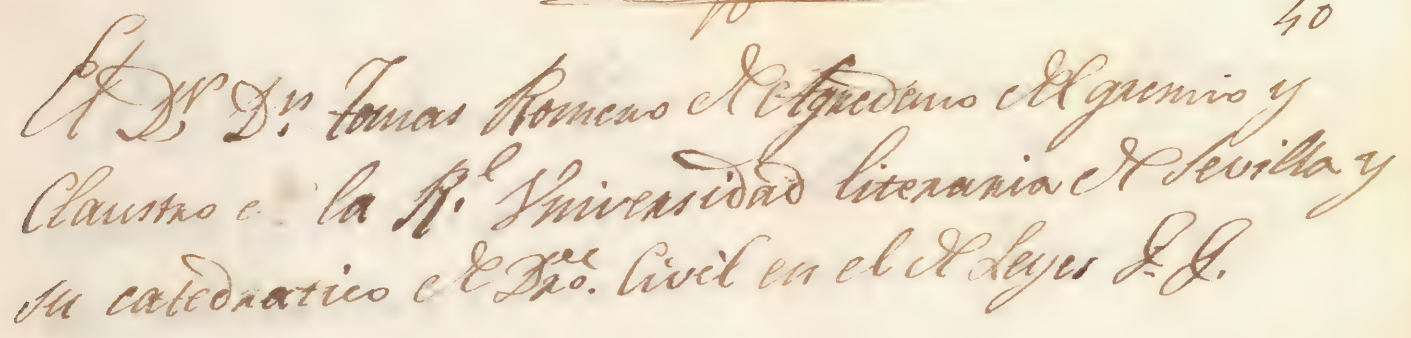 40
El Dr. Dn. Tomas Romero de del gremio y
Claustro de la Rl. Vniversidad literaria de Sevilla y
su catedratico de Dro. Civil en el de Leyes